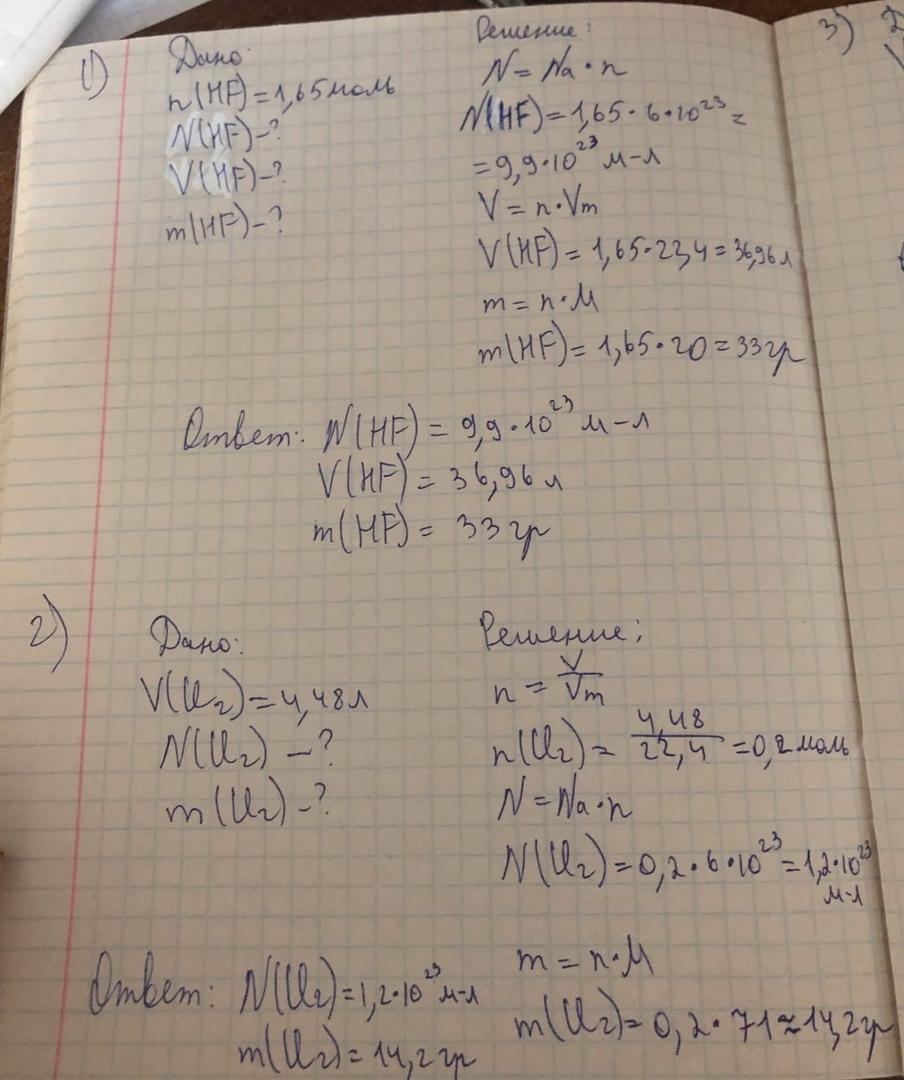 1)
Дано:
n(HF)=1,65 моль
N(HF)-?
V(HF)-?
m(HF)-?
Решение:
N = Na · n
N(HF)=1,65 · 6 · 10²³ =
= 9,9 · 10²³ м-л
V = n · Vm
V(HF) = 1,65 · 22,4 = 36,96 л
m = n · M
m(HF) = 1,65 · 20 = 33 гр
Ответ: N(HF) = 9,9 · 10²³ м-л
V(HF) = 36,96 л
m(HF) = 33 гр
2)
Дано:
V(Cl₂)=4,48 л
N(Cl₂) -?
m(Cl₂) -?
Решение:
n = V/Vm
n(Cl₂) = 4,48/22,4 = 0,2 моль
N = Na · n
N(Cl₂) = 0,2 · 6 · 10²³ = 1,2 · 10²³
м-л
m = n · M
m(Cl₂) = 0,2 · 71 ≈ 14,2 гр
Ответ: N(Cl₂) = 1,2 · 10²³ м-л
m(Cl₂) = 14,2 гр
3)